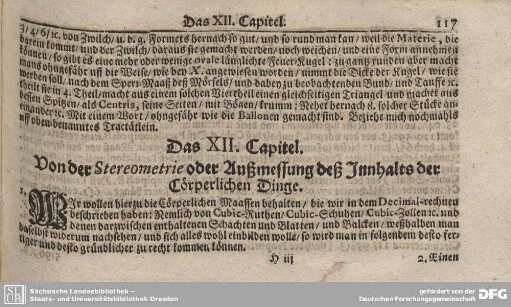 Das XII. Capitel. 117
3/4/6/ ꝛc. von Zwilch/ u. d. g. Formets hernach so gut/ und so rund man kan/ weil die Materie, die
darein kommt/ und der Zwilch/ daraus sie gemacht werden/ noch weichen/ und eine Form annehmen
können/ so gibt es eine mehr oder wenige ovale länglichte Feuer-Kugel: zu gantz runden aber macht
mans ohngefähr uff die Weise/ wie bey X. angewiesen worden/ nimmt die Dicke der Kugel/ wie sie
werden soll/ nach dem Sperr-Maaß deß Mörsels/ und dabey zu beobachtenden Bund/ und Tauffe ꝛc.
theilt sie in 4. Theil/ macht aus einem solchen Viertheil einen gleichseitigen Triangel und machet aus
dessen Spitzen/ als Centris, seine Seiten/ mit Bögen/ krumm: Nehet hernach 8. solcher Stücke an
einander ꝛc. Mit einem Wort/ ohngefähr wie die Ballonen gemacht sind. Beziehe mich nochmahls
uff obenbenanntes Tractätlein.
Das XII. Capitel.
Von der Stereometrie oder Außmessung deß Innhalts der
Cörperlichen Dinge.
1. Wir wollen hierzu die Cörperlichen Maassen behalten/ die wir in dem Decimal-rechnen
beschrieben haben: Nemlich von Cubic-Ruthen/ Cubic-Schuhen/ Cubic-Zollen ꝛc. und
denen darzwischen enthaltenen Schachten und Blatten/ und Balcken/ weßhalben man
daselbst widerum nachsehen/ und sich alles wohl einbilden wolle/ so wird man in folgendem desto fer-
tiger und desto gründlicher zu recht kommen können.
H iij 2. Einen
SLUB
Sächsische Landesbibliothek –
Staats- und Universitätsbibliothek Dresden
gefördert von der
Deutschen Forschungsgemeinschaft
DFG